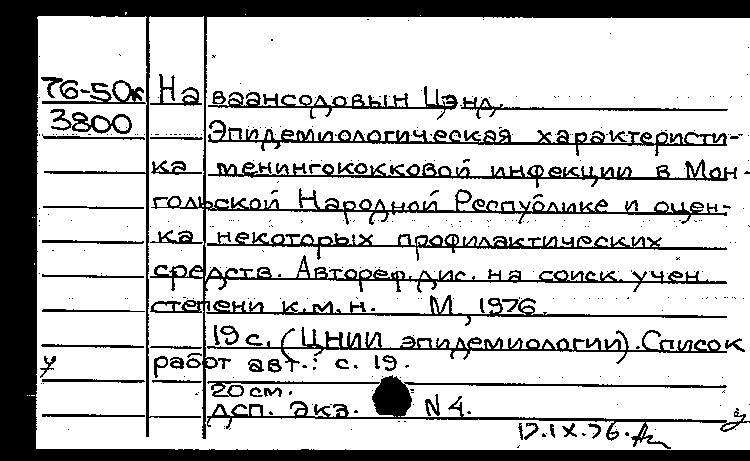 76-50к На ваансодовын Цэнд.
3800 Эпидемиологическая характеристи-
ка менингококковой инфекции в Мон-
гольской Народной Республике и оцен-
ка некоторых профилактических
средств. Автореф. дис. на соиск. учен.
степени к.м.н. М, 1976.
19 с. (ЦНИИ эпидемиологии). Список
у работ авт.: с. 19.
20 см.
ДСП. Экз. N 4.
17.IX.76.